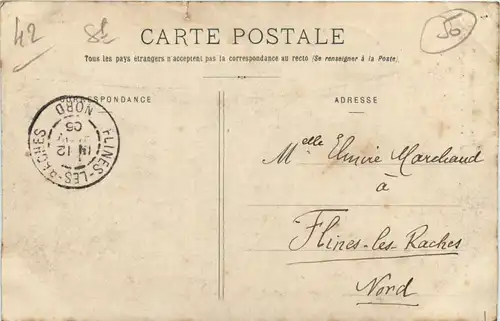 42
CARTE POSTALE
Tous les pays étrangers n'acceptent pas la correspondance au recto (Se renseigner à la Poste).
CORRESPONDANCE
ADRESSE
FLINES-LES-RACHES
12
05
NORD
Melle Elmire Marchand
à
Flines-les-Raches
Nord